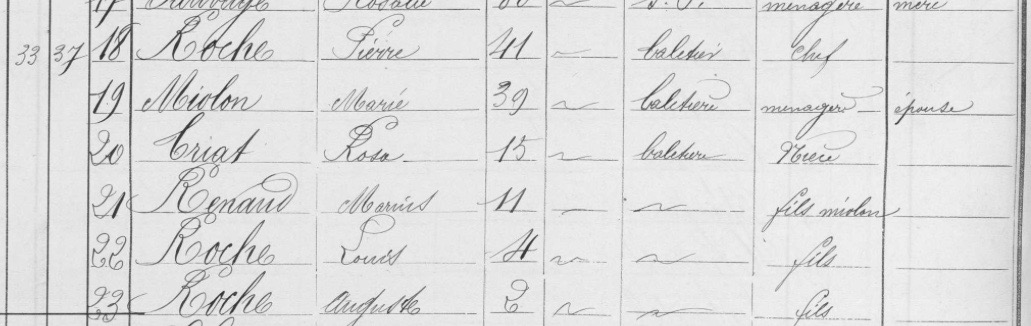 17 Rosalie ménagère mère
33 37 18 Roche Pierre 41 Caletier chef
19 Miolon Marie 39 Caletière ménagère épouse
20 Criat Rosa 15 Caletière Nièce
21 Renaud Marius 11 fils miolon
22 Roche Louis 4 fils
23 Roche Auguste 2 fils